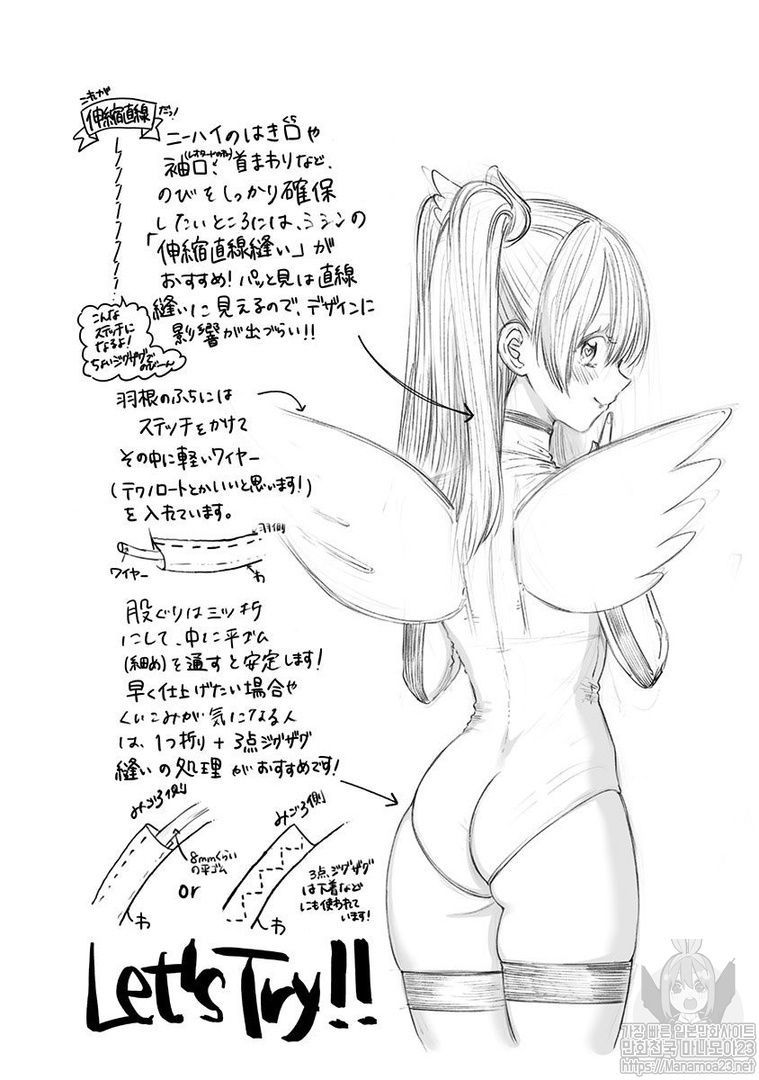 これが
伸縮直線
だっ!
ニーハイのはき口や
くち
袖口、首まわりなど、
(レオタードのみ)
のびをしっかり確保
したいところには、ミシンの
「伸縮直線縫い」が
おすすめ!パッと見は直線
縫いに見えるので、デザインに
影響が出づらい!!
こんな
ステッチに
なるよ!
ちょいジグザグで
のびーん
羽根のふちには
ステッチをかけて
その中に軽いワイヤー
(テクノロートとかいいと思います!)
を入れています。
羽側
ワイヤー
わ
股ぐりは三ッ折
にして、中に平ゴム
(細め)を通すと安定します!
早く仕上げたい場合や
くいこみが気になる人
は、1つ折り+3点ジグザグ
縫いの処理がおすすめです!
みごろ側
8mmくらい
の平ゴム
わ
or
みごろ側
3点ジグザグ
は下着など
にも使われて
います!
わ
Let's Try!!
가장 빠른 일본만화사이트
만화천국 마나모아23
https://Manamoa23.net